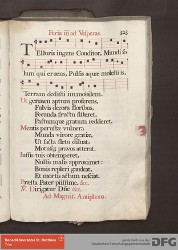 Feria iij ad Vesperas.
325
TElluris ingens Conditor, Mundi so
lum qui eruens, Pulsis aque molestiis,
Terram dedisti immobilem.
Ut germen aptum proferens,
Fulvis decora floribus,
Fecunda fructu sisteret,
Pastumque gratum redderet.
Mentis perustæ vulnera
Munda virore gratiæ,
Ut facta fletu diluat,
Motusque pravos atterat.
Jussis tuis obtemperet,
Nullis malis approximet:
Bonis repleri gaudeat,
Et mortis actum nesciat.
Præsta, Pater piissime, &c.
℣. Dirigatur Dñe &c.
Ad Magnif. Antiphona.
DFG